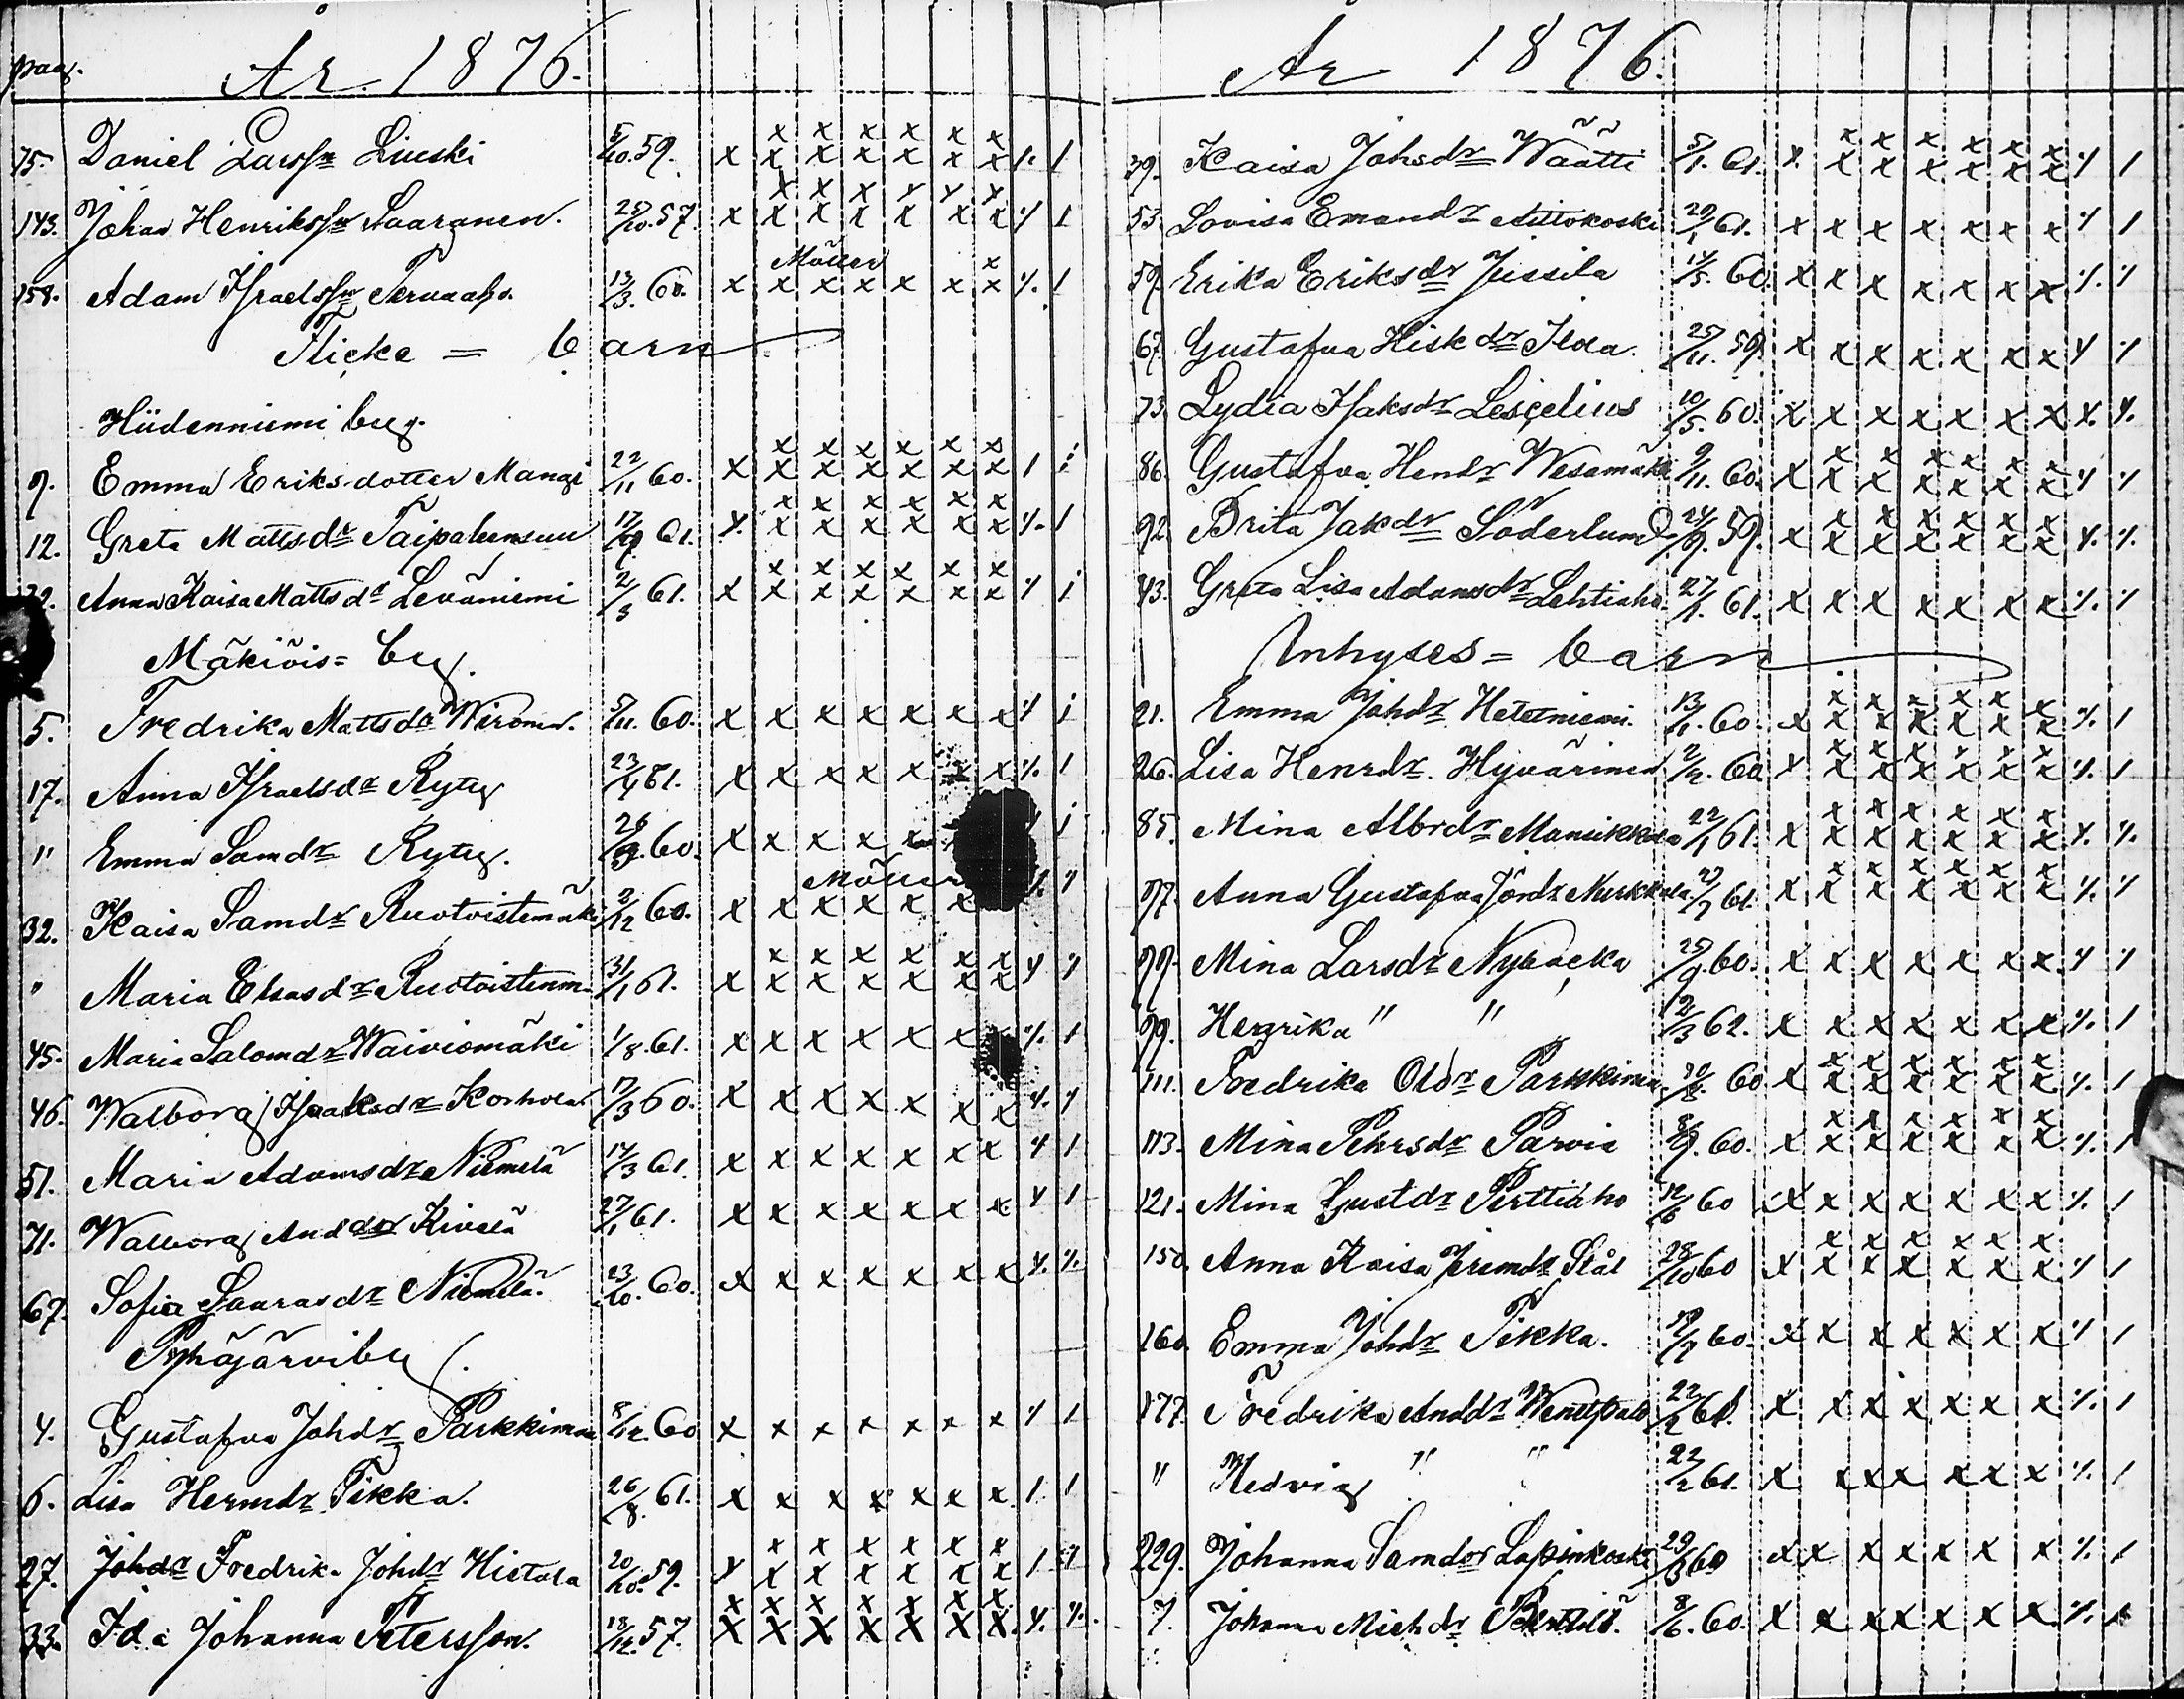 pag. År 1876.
75. Daniel Larsſn Linski 5/10. 59. x x x x x x x x x x x x x 1. 1
143. Johan Henriksſn Saaranen. 25/10. 57. x x x x x x x x x x x x x % 1
Möller x
158. Adam Iſraelsſn Tervaaho. 13/3. 60. x x x x x x x % 1
Flicke = barn
Hiidenniemi by.
9. Emma Eriksdotter Mangi 22/11 60. x x x x x x x x x x x x x 1 1
12. Greta Mattsdr Taipaleensuu 17/9 61. x x x x x x x x x x x x x % 1
Anna Kaisa Mattsdr Leväniemi 2/3 61. x x x x x x x x x x x x x % 1
Mäkiöis = by.
5. Fredrika Mattsdr Wiroma. 5/11. 60. x x x x x x x % 1
17. Anna Iſraelsdr Rytty 23/4 61. x x x x x x x % 1
" Emma Samdr Rytty. 26/9. 60. x x x x 1
Möller
32. Kaisa Samdr Ruotoistemäki 2/12 60. x x x x x x % %
" Maria Eliasdr Ruotoistenm. 31/1 61. x x x x x x x x x x x x x % %
45. Maria Salomdr Waiviomäki 1/8. 61. x x x x x x x % 1
46. Walborg Iſaaksdr Korhola 17/3 60. x x x x x x x % %
51. Maria Adamsdr Niemelä 14/3 61. x x x x x x x % 1
71. Walborg Anddr Kivelä 27/1 61. x x x x x x x % 1
67. Sofia Laurasdr Niemelä. 23/10. 60. x x x x x x x % %
Pyhäjärviby.
4. Gustafva Johdr Parkkima 8/12 60 x x x x x x x % 1
6. Lisa Hermdr Tikka. 26/8. 61. x x x x x x x 1 1
27. Fredrik. Johdr Hietala 20/10. 59. x x x x x x x x x x x x x 1 %
33. Ida Johanna Petersſon. 13/12. 57. x x x x x x x x x x x x x x % %
År 1876.
39. Kaisa Johsdr Wäätti 5/1. 61. x x x x x x x x x x x x x % 1
53. Lovisa Emandr Aittokoski 29/1 61. x x x x x x x % 1
59. Erika Eriksdr Jussila 14/5. 60. x x x x x x x % %
67. Gustafva Hiskdr Ilva. 25/11. 59. x x x x x x x % %
73. Lydia Iſaksdr Lescelius 10/5. 60. x x x x x x x % %
86. Gustafva Hendr Wesamäki 9/11. 60. x x x x x x x x x x x x x % %
92. Brita Jakdr Söderlund 24/9. 59. x x x x x x x x x x x x x % %
43. Greta Lisa Adamsdr Lehtiaho 27/1. 61. x x x x x x x % %
Inhyses = barn
21. Emma Johdr Heteniemi. 13/1. 60. x x x x x x x x x x x x x % 1
26. Lisa Henrdr. Hyvärinen 2/2. 60 x x x x x x x x x x x x x % 1
85. Mina Albrdr Mansikkala 22/1 61. x x x x x x x x x x x x x % %
97. Anna Gustafva Jöndr Nirkkola 61. x x x x x x x x x x x x x % %
99. Mina Larsdr Nybacka 25/9. 60. x x x x x x x % %
99. Henrika " " 12/3 62. x x x x x x x % 1
111. Fredrika Oldr Parkkima 60 x x x x x x x x x x x x x % 1
113. Mina Pehrsdr Parvia 8/9. 60. x x x x x x x x x x x x x % 1
121. Mina Gustdr Perttiaho 12/6 60 x x x x x x x % 1
150. Anna Kaisa Jeremdr Stål 28/10 60 x x x x x x x x x x x x x % 1
160. Emma Johdr Tikka. 60. x x x x x x x % 1
177. Fredrika Anddr 22/2 61. x x x x x x x % 1
" Hedvig " " 22/2 61. x x x x x x x % 1
229. Johanna Samdr Lapinkoski 29/3 60 x x x x x x x % 1
7. Johanna Michdr Penttilä. 8/6. 60. x x x x x x x %